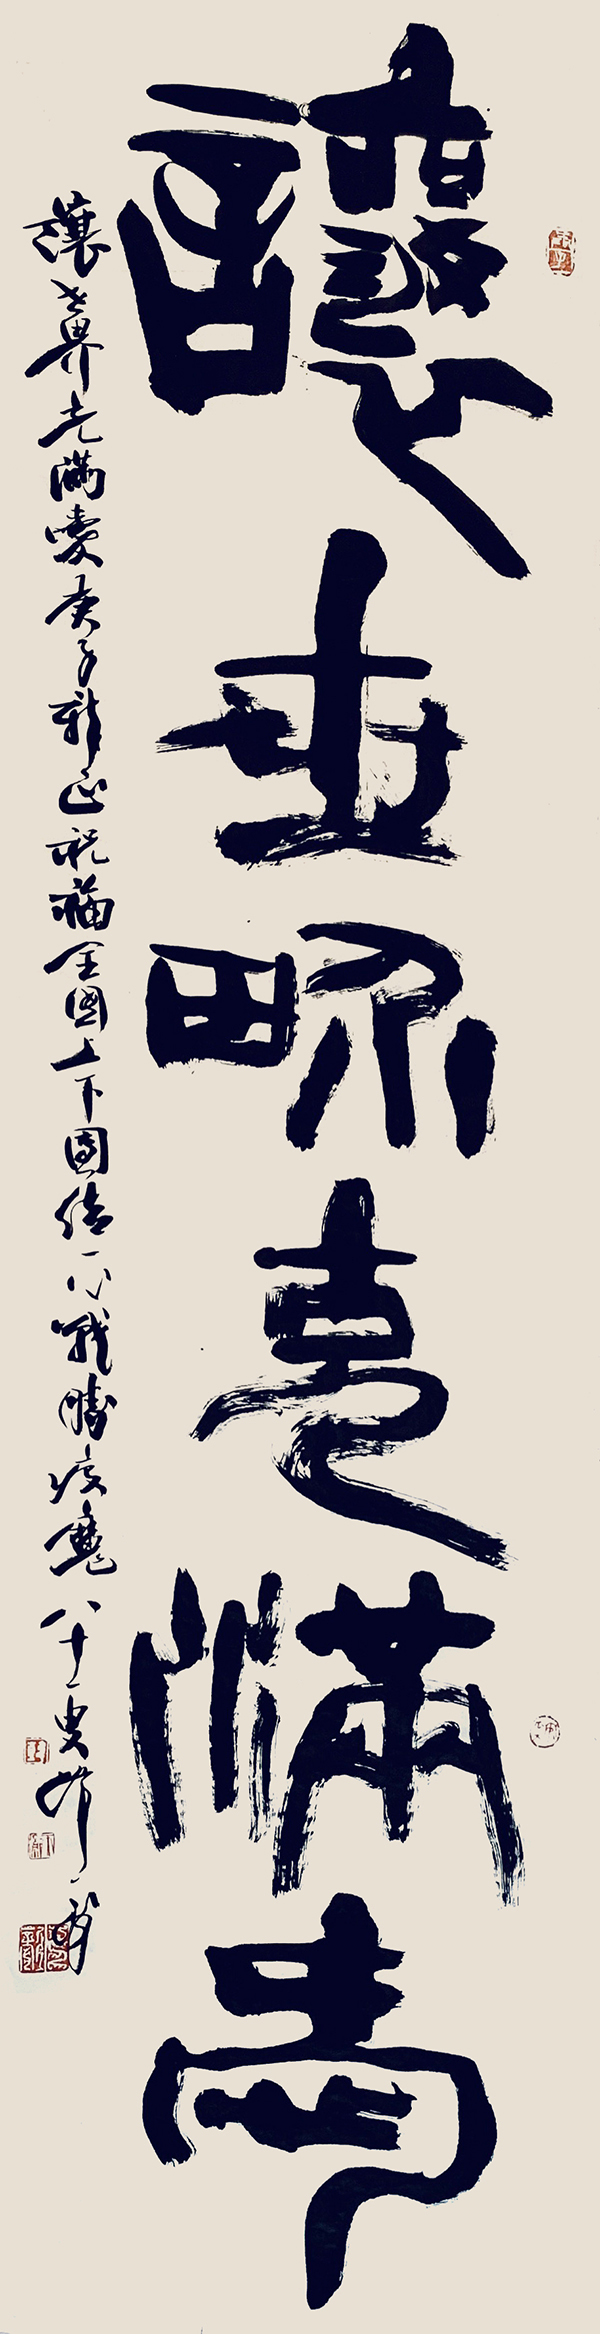 讓世界充滿愛
讓世界充滿愛庚子新正祝福全國上下團結一心戰勝疫魔八十一叟